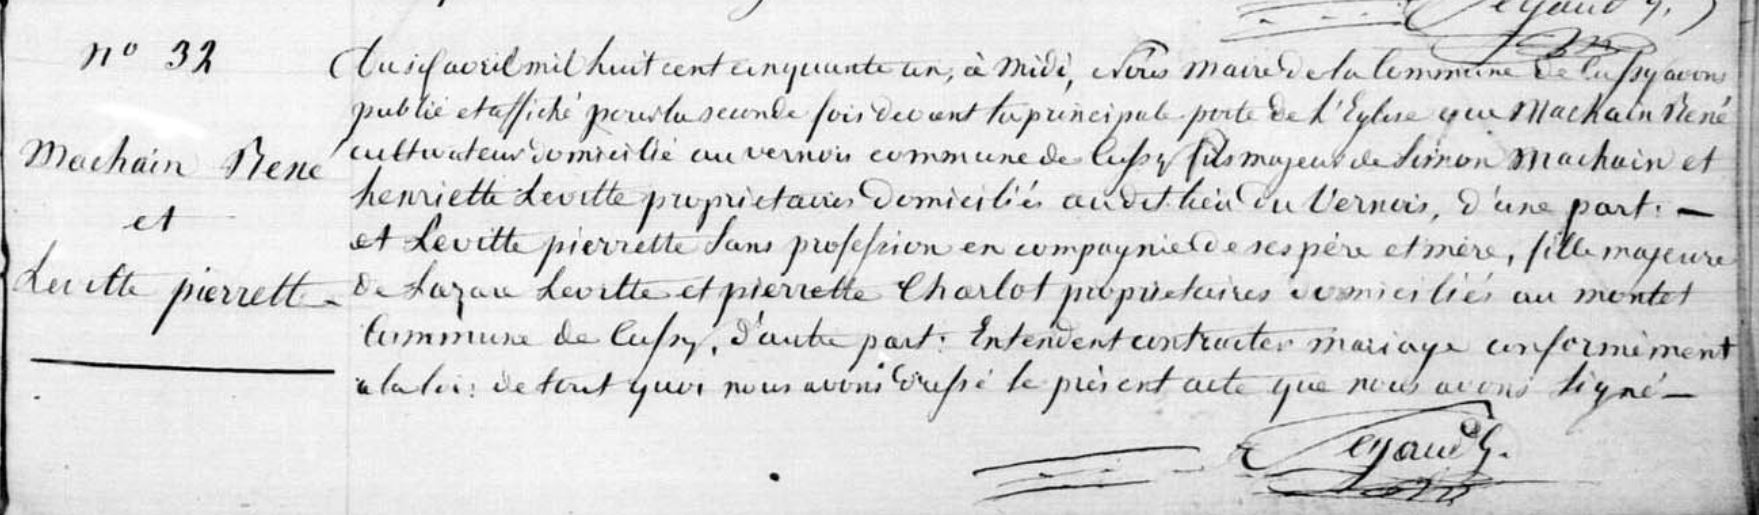 n° 32
Machain René
et
Levitte pierrette
Du six avril mil huit cent cinquante un, à Midi, Nous Maire de la Commune de Cussy avons
publié et affiché pour la seconde fois devant la principale porte de l'Eglise que Machain René
cultivateur domicilié au vernois commune de Cussy fils majeur de Simon Machain et
henriette Levitte proprietaires domiciliés audit lieu du Vernois, d'une part: —
et Levitte pierrette sans profession en compagnie de ses père et mère, fille majeure
de Lazare Levitte et pierrette Charlot propriétaires domiciliés au montet
Commune de Cussy, d'autre part: Entendent contracter mariage conformément
a la loi: de tout quoi nous avons dressé le présent acte que nous avons signé —